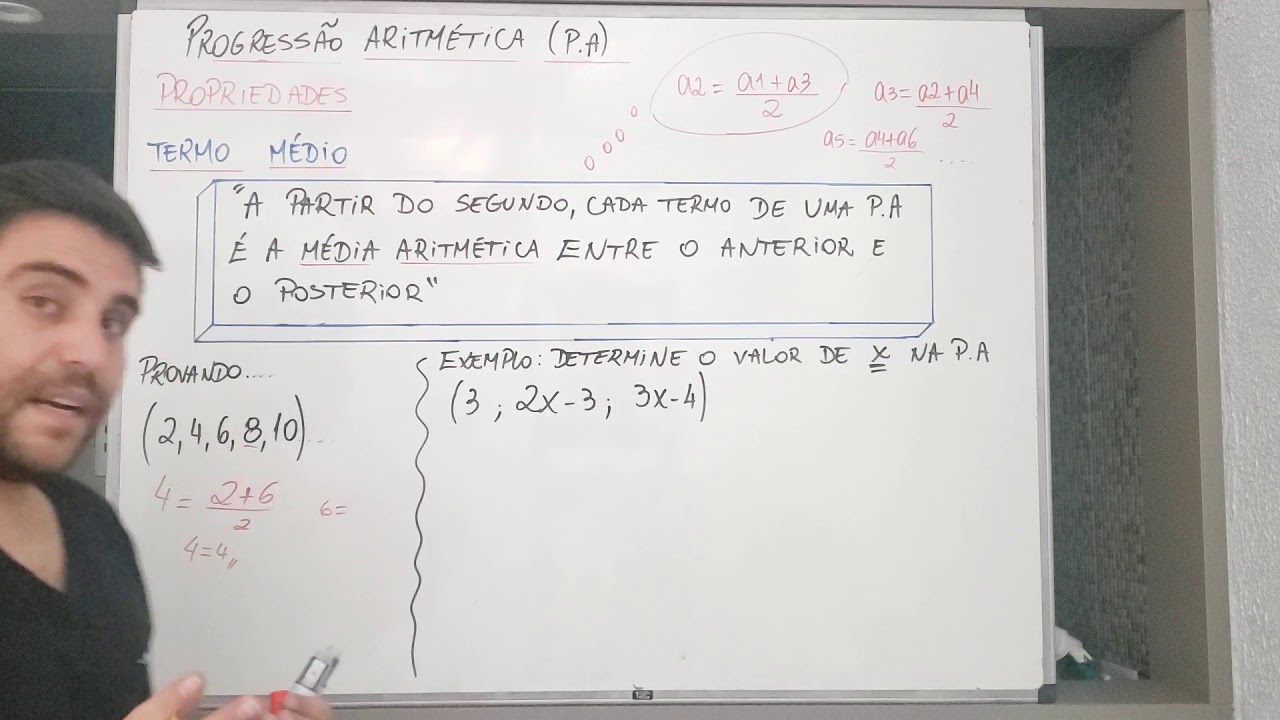 PROGRESSÃO ARITMÉTICA (P.A)
PROPRIEDADES
a2 = a1+a3 / 2
a3 = a2+a4 / 2
a5 = a4+a6 / 2 ....
TERMO MÉDIO
"A PARTIR DO SEGUNDO, CADA TERMO DE UMA P.A
É A MÉDIA ARITMÉTICA ENTRE O ANTERIOR E
O POSTERIOR"
PROVANDO....
(2,4,6,8,10)...
4 = 2+6 / 2
6=
4=4,,
EXEMPLO: DETERMINE O VALOR DE x NA P.A
(3 ; 2x-3; 3x-4)